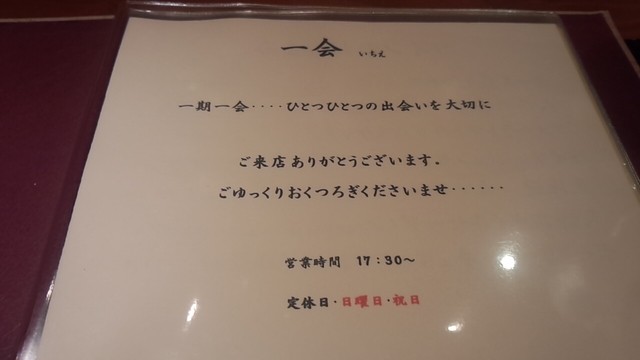 一会 いちえ
一期一会‥‥ひとつひとつの出会いを大切に
ご来店ありがとうございます。
ごゆっくりおくつろぎくださいませ‥‥‥
営業時間 17:30～
定休日・日曜日・祝日